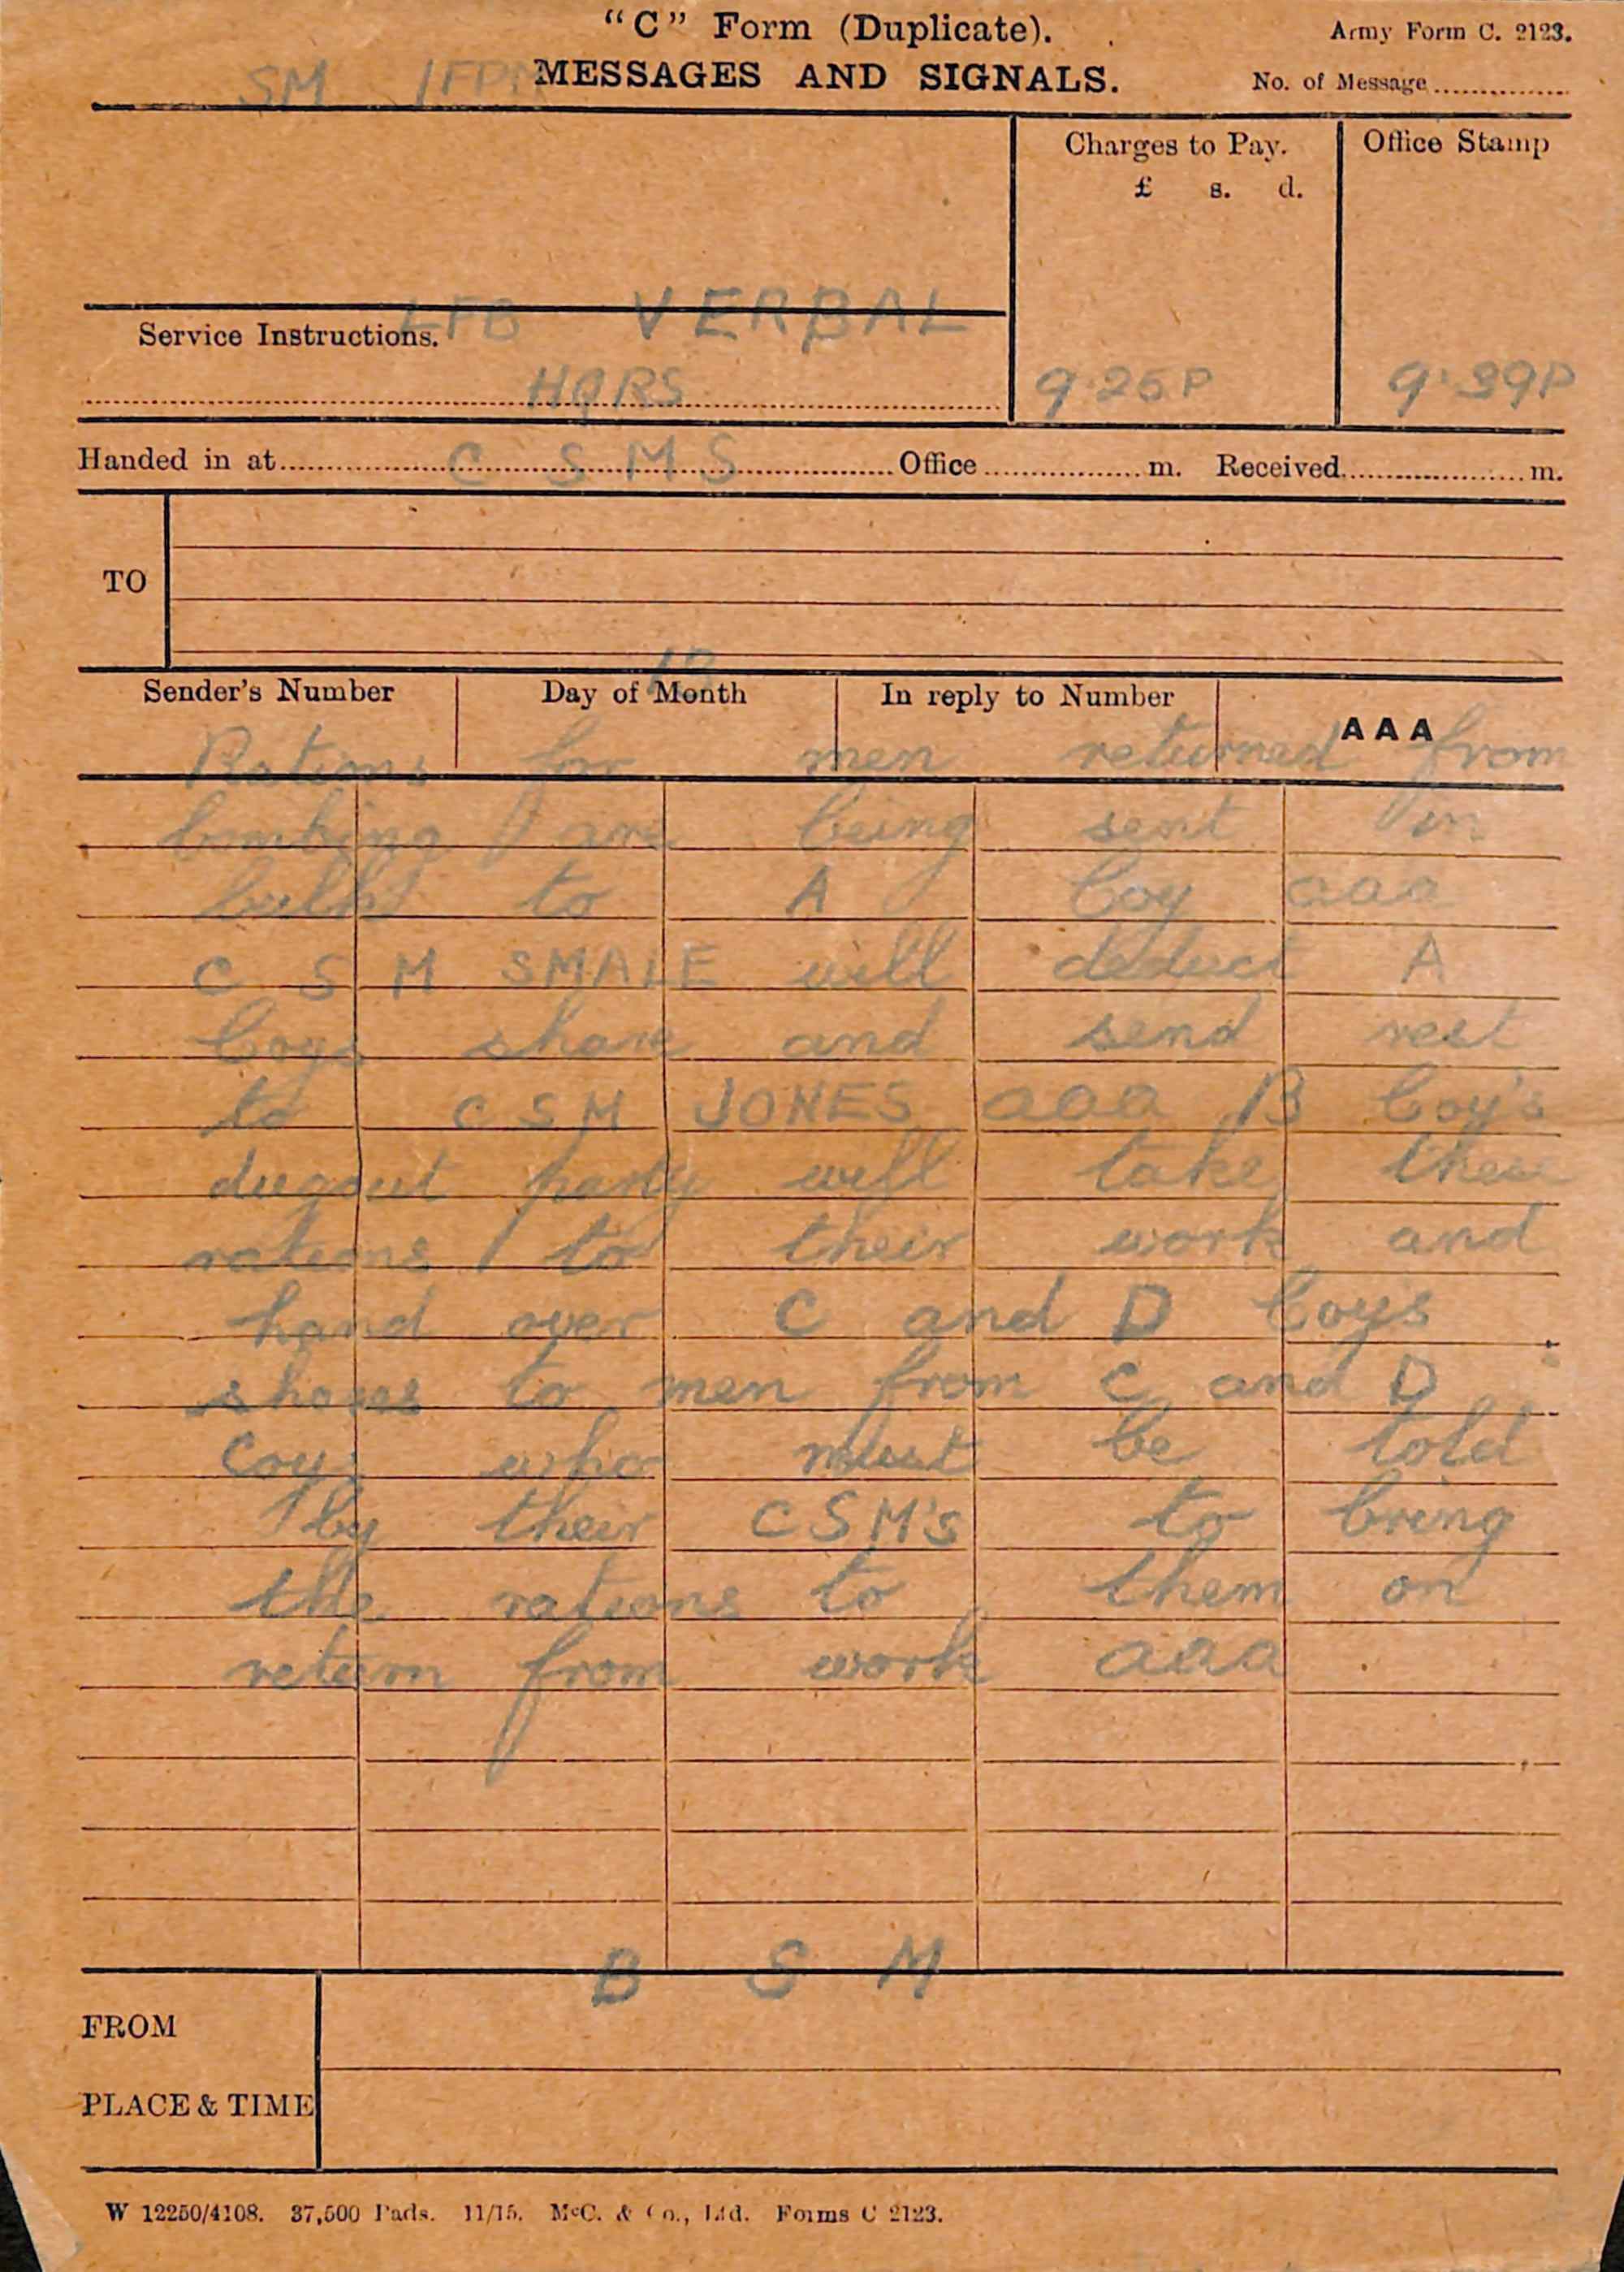 "C" Form (Duplicate).
Army Form C. 2123.
SM
MESSAGES AND SIGNALS.
No. of Message
Charges to Pay.
£ s. d.
Office Stamp
LFB VERBAL
Service Instructions.
HQRS 9.25P 9.39P
Handed in at C S M S Office m. Received m.
TO
12
Sender's Number Day of Month In reply to Number AAA
Rations for men returned from
bombing are being sent in
bulk to A Coy aaa
C S M SMALE will deduct A
Coys share and send rest
to C S M JONES aaa B Coy's
dugout party will take these
rations to their work and
hand over C and D Coy's
shares to men from C and D
Coys who must be told
by their CSM's to bring
the rations to them on
return from work aaa
B S M
FROM
PLACE & TIME
W 12250/4108. 37,500 Pads. 11/15. McC. & Co., Ltd. Forms C 2123.